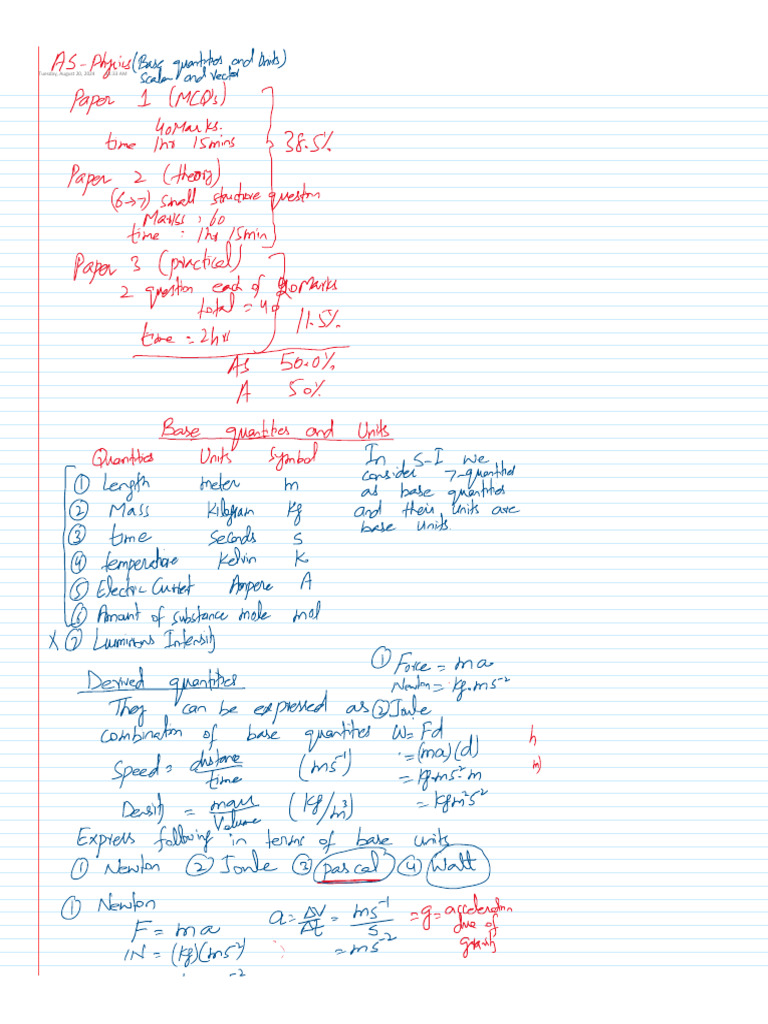 AS-Physics (Base quantities and Units)
Tuesday, August 20, 2024
Scalar and vector
Paper 1 (MCQ's)
40 Marks.
time 1hr 15mins
38.5%
Paper 2 (theory)
(6→7) small structure question
Marks : 60
time : 1hr 15min
Paper 3 (practical)
2 question each of 20 Marks
total = 40
11.5%
time = 2hr
AS 50.0%
A 50%
Base quantities and Units
Quantities Units Symbol
① Length meter m
② Mass kilogram kg
③ time seconds s
④ temperature kelvin K
⑤ Electric Current Ampere A
⑥ Amount of substance mole mol
X ⑦ Luminous Intensity
In S-I we
consider 7-quantities
as base quantities
and their units are
base units.
Derived quantities
They can be expressed as
combination of base quantities
Speed = distance/time (ms⁻¹)
Density = mass/Volume (kg/m³)
① Force = ma
Newton = kg.ms⁻²
② Joule
W = Fd
= (ma)(d)
= kg.ms⁻².m
= kgm²s⁻²
h
Express following in terms of base units
① Newton ② Joule ③ pascal ④ Watt
① Newton
F = ma
1N = (kg)(ms⁻²)
a = ΔV/Δt = ms⁻¹/s
= ms⁻²
= g = acceleration
due of
gravity